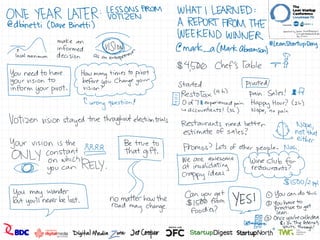 ONE YEAR LATER: LESSONS FROM VOTIZEN
@dbinetti (Dave Binetti)
make an
informed
decision
local minimum
VISION
as an entrepreneur
You need to have
your vision to
inform your pivot.
How many times to pivot
before you change your
vision?
wrong question!
Votizen vision stayed true throughout election trials
Your vision is the
ONLY constant
on which
you can RELY.
ARRR
Be true to
that gift.
You may wander
but you'll never be lost.
no matter how the
road may change
WHAT I LEARNED:
A REPORT FROM THE
WEEKEND WINNER
@mark_a (Mark Abramson)
The
Lean Startup
Conference
#LeanStartupDay
$4500 Chef's Table
Started
RestoTax (2h)
0 of 7 experienced pain
w/ accountants! (2h)
Pivoted
Pain: Sales!
Happy Hour? (2h)
Nope, no pain
Restaurants need better
estimate of sales?
Nope,
not that
either
Promos? Lots of other people. No.
We are awesome
at invalidating
crappy ideas
Wine Club for
restaurants?
Can you get
$1500 from
foodies?
YES!
① You can do this
② You have to
practise to get
lean.
BDC
Digital Media Zone
Jet Cooper
DFC
StartupDigest
StartupNorth
TWG